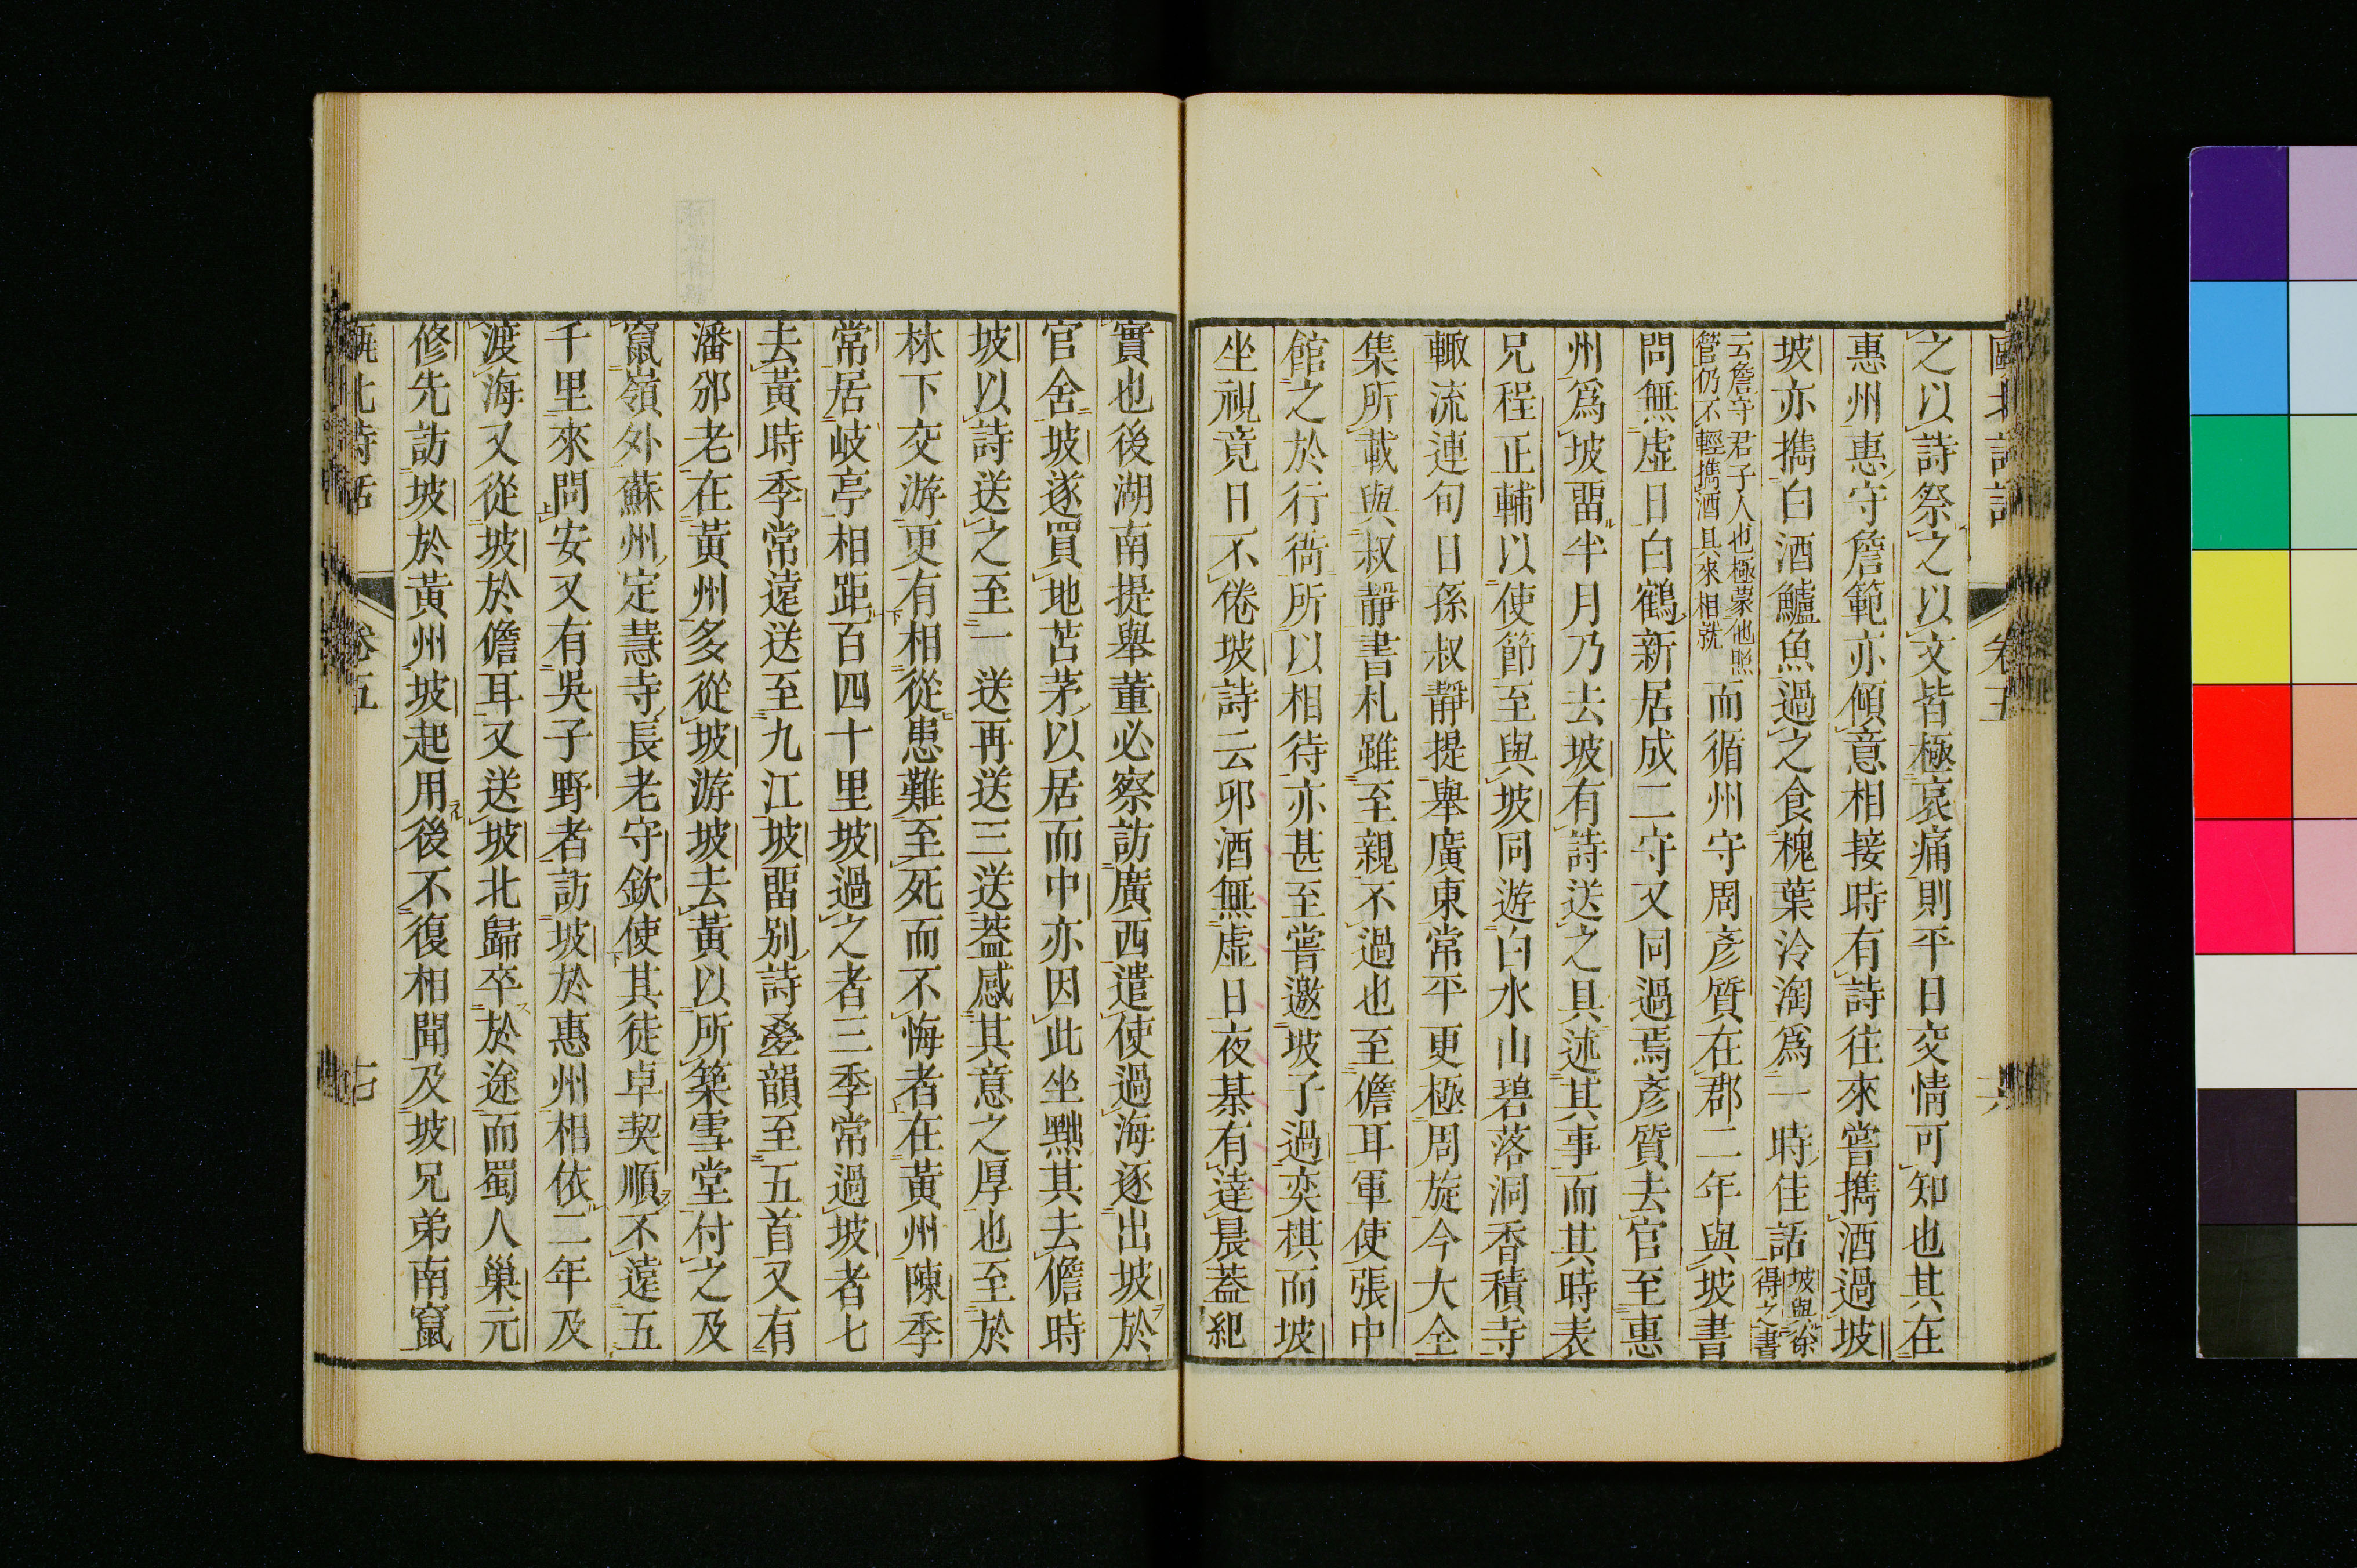 甌北詩話 卷五 六
之以詩祭之以文皆極哀痛則平日交情可知也其在
惠州惠守詹範亦傾意相接時有詩往來嘗攜酒過坡
坡亦攜白酒鱸魚過之食槐葉冷淘爲一時佳話坡與徐得之書
云詹守君子人也極蒙他照管仍不輕攜酒具來相就而循州守周彥質在郡二年與坡書
問無虛日白鶴新居成二守又同過焉彥質去官至惠
州爲坡畱半月乃去坡有詩送之具述其事而其時表
兄程正輔以使節至與坡同遊白水山碧落洞香積寺
輙流連旬日孫叔靜提舉廣東常平更極周旋今大全
集所載與叔靜書札雖至親不過也至儋耳軍使張中
館之於行衙所以相待亦甚至嘗邀坡子過奕棋而坡
坐視竟日不倦坡詩云卯酒無虛日夜棊有達晨葢紀
實也後湖南提舉董必察訪廣西遣使過海逐出坡於
官舍坡遂買地苫茅以居而中亦因此坐黜其去儋時
坡以詩送之至一送再送三送葢感其意之厚也至於
林下交游更有相從患難至死而不悔者在黃州陳季
常居岐亭相距百四十里坡過之者三季常過坡者七
去黃時季常遠送至九江坡畱別詩疊韻至五首又有
潘邠老在黃州多從坡游坡去黃以所築雪堂付之及
竄嶺外蘇州定慧寺長老守欽使其徒卓契順不遠五
千里來問安又有吳子野者訪坡於惠州相依二年及
渡海又從坡於儋耳又送坡北歸卒於途而蜀人巢元
修先訪坡於黃州坡起用後不復相聞及坡兄弟南竄
甌北詩話 卷五 七